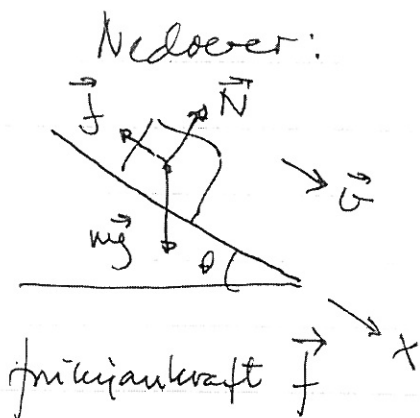 Nedover:
f⃗ N⃗
v⃗
mg⃗
θ
x
friksjonkraft f⃗